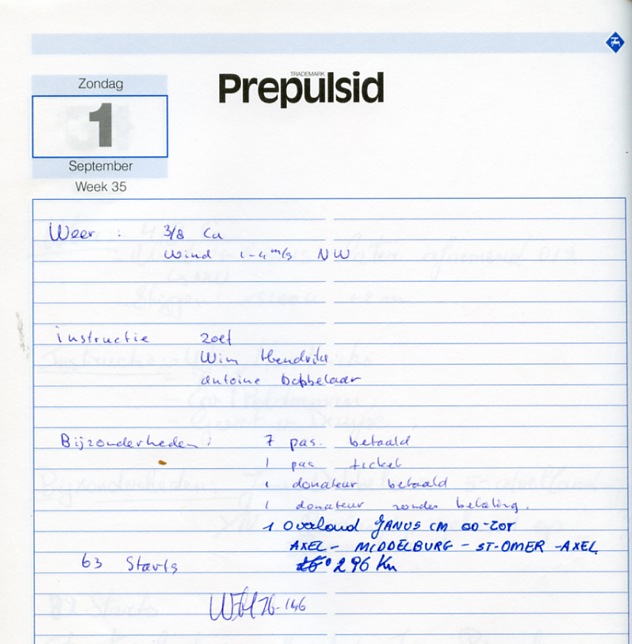 Zondag
1
September
Week 35
TRADEMARK
Prepulsid
Weer : 3/8 Cu
Wind 1-4 m/s NW
instructie Zoef
Wim Hendrikx
Antoine Dobbelaar
Bijzonderheden : 7 pas. betaald
1 pas ticket
1 donateur betaald
1 donateur zonder betaling.
1 Overland JANUS CM OO-ZOT
AXEL - MIDDELBURG - ST-OMER - AXEL
296 Km
63 Starts